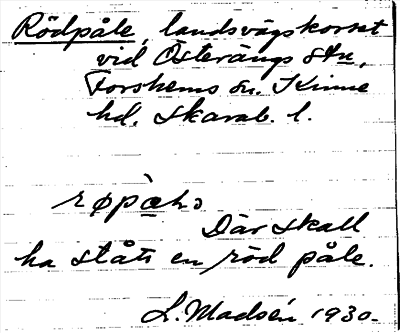 Rödpåle, landsvägskorset
vid Österängs stn,
Forshems sn. Kinne
hd. Skarab. l.
Där skall
ha stått en röd påle.
L. Madsén 1930.